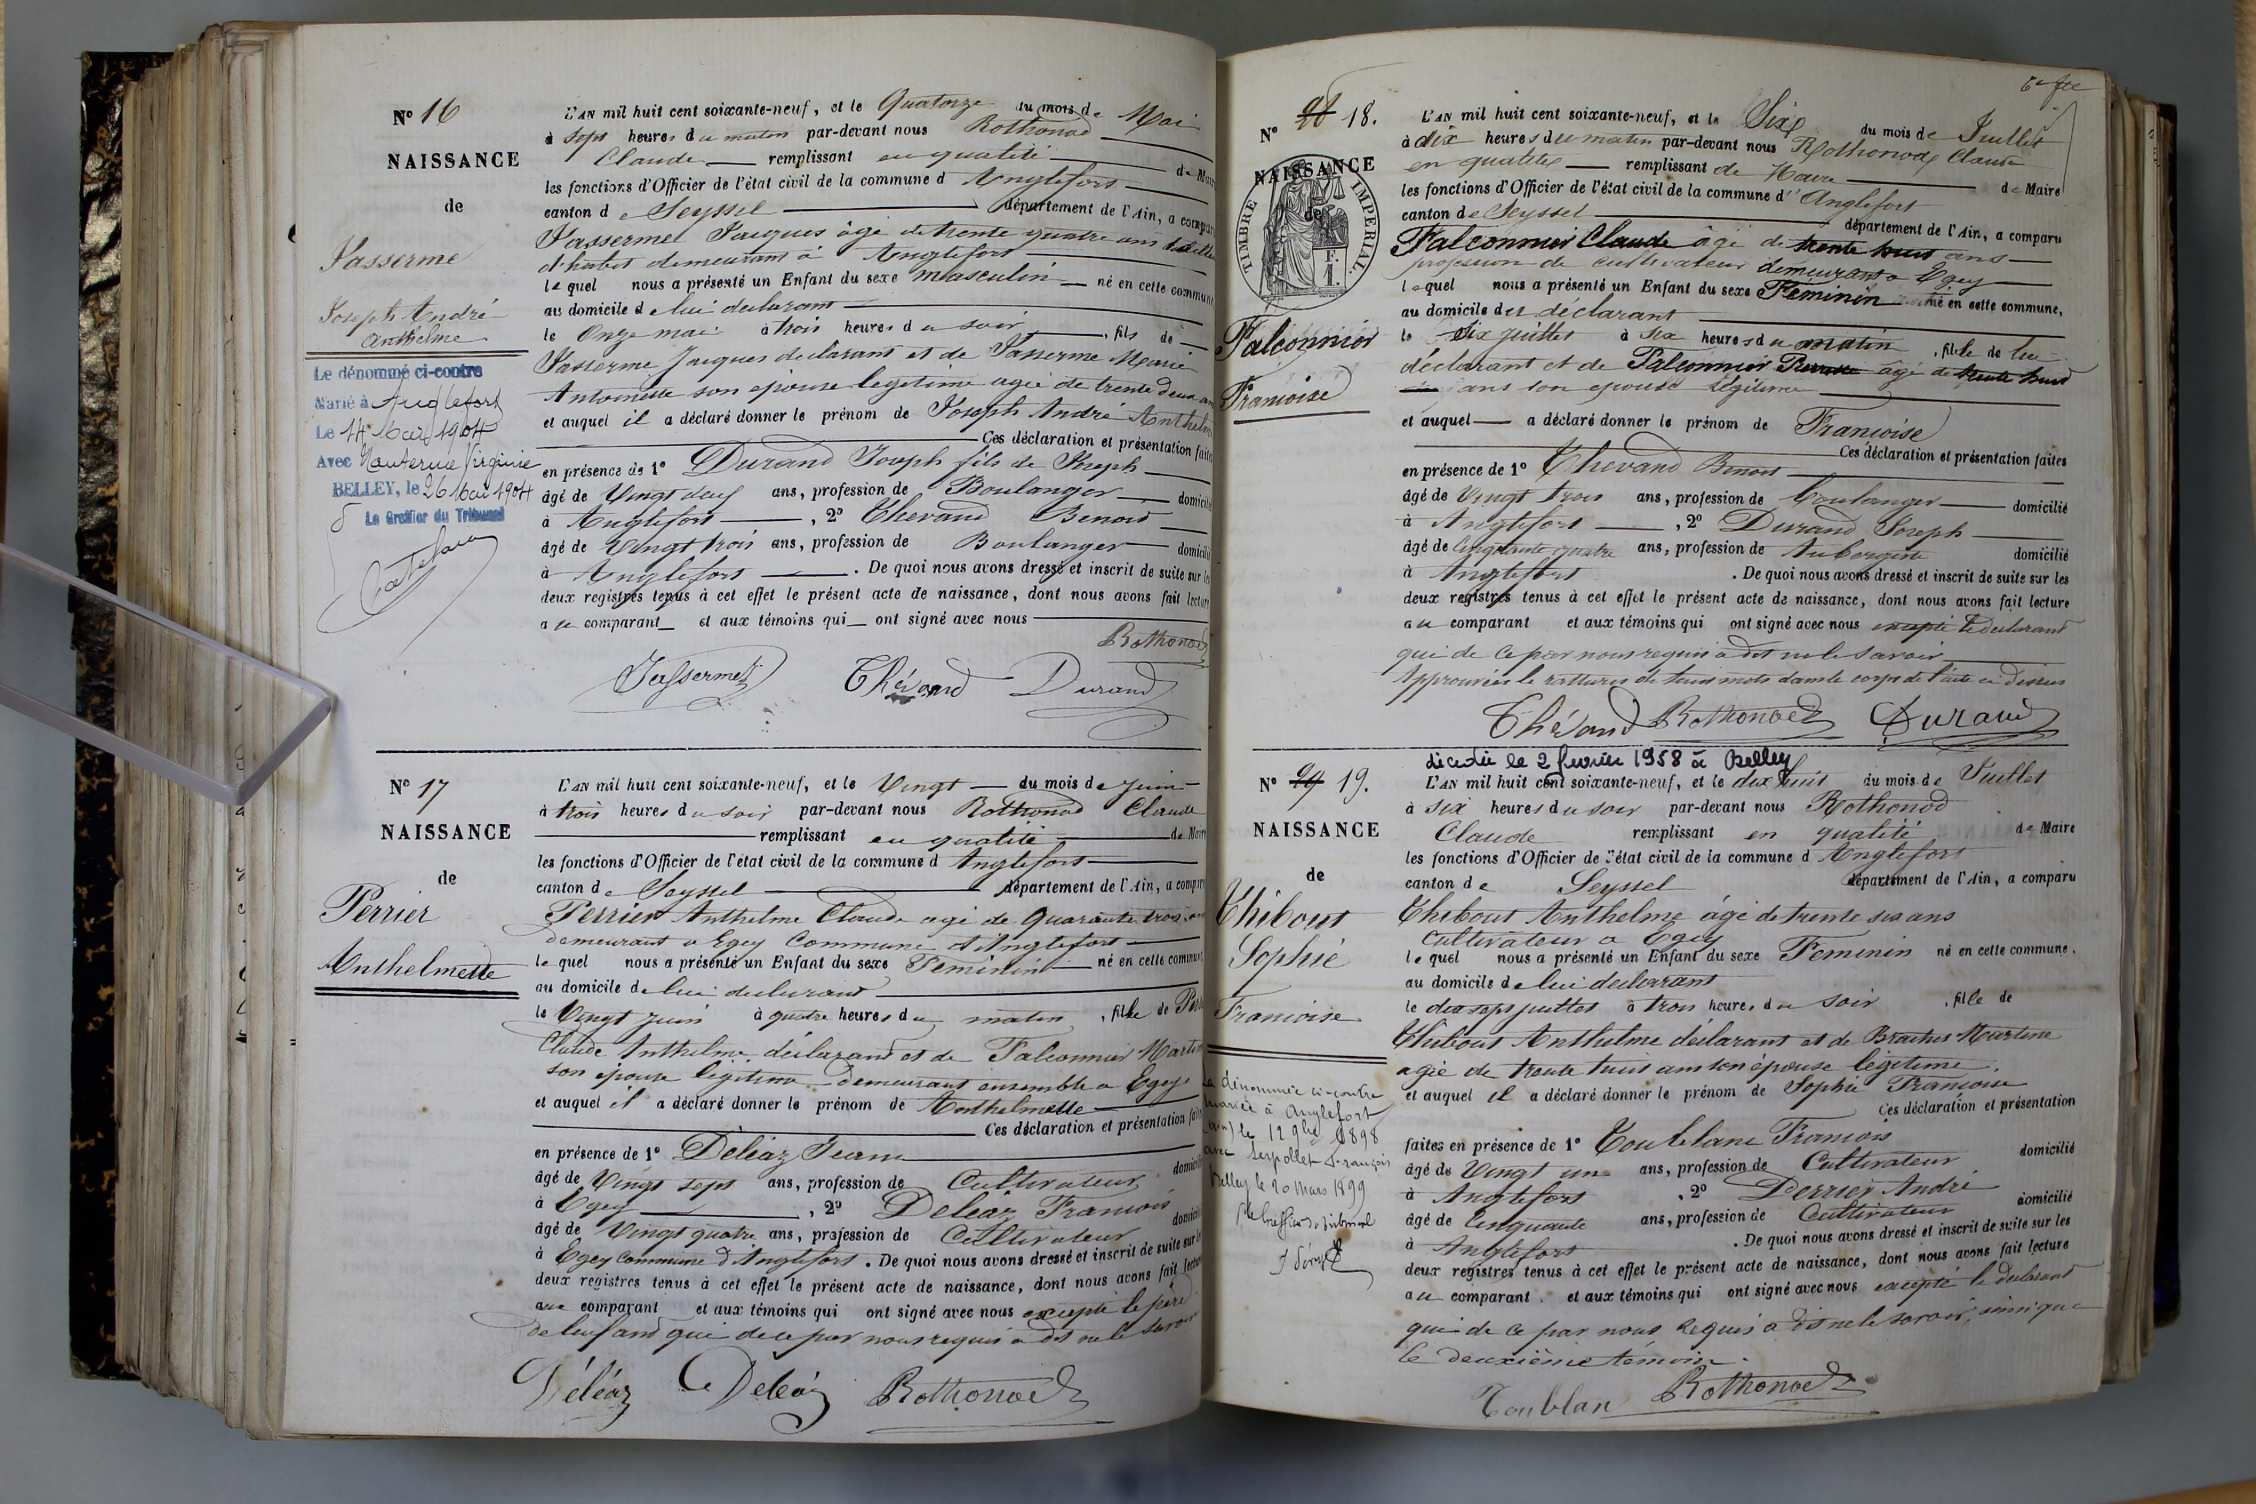 N° 16
NAISSANCE
de
Jasserme
Joseph André
Anthelme
Le dénommé ci-contre
Marié à Anglefort
Le 14 Mai 1904
Avec Virginie
BELLEY, le 26 Mai 1904
Le Greffier du Tribunal
L'AN mil huit cent soixante-neuf, et le Quatorze du mois de Mai
à sept heures du matin par-devant nous Rothonod
Claude remplissant en qualité de Maire
les fonctions d'Officier de l'état civil de la commune d Anglefort
canton de Seyssel département de l'Ain, a comparu
Jassermet Jacques âgé de trente quatre ans
d'habit demeurant à Anglefort
lequel nous a présenté un Enfant du sexe masculin né en cette commune
au domicile de lui déclarant
le Onze mai à trois heures du soir, fils de
Jasserme Jacques declarant et de Jasserme Marie
Antoinette son épouse légitime agée de trente deux ans
et auquel il a déclaré donner le prénom de Joseph Andre Anthelme
Ces déclaration et présentation faites
en présence de 1° Durand Joseph fils de Joseph
âgé de Vingt neuf ans, profession de Boulanger domicilié
à Anglefort, 2° Thevand Benoit
âgé de Vingt trois ans, profession de Boulanger domicilié
à Anglefort. De quoi nous avons dressé et inscrit de suite sur les
deux registres tenus à cet effet le présent acte de naissance, dont nous avons fait lecture
au comparant et aux témoins qui ont signé avec nous
Rothonod
Jassermet Thévand Durand
N° 17
NAISSANCE
de
Perrier
Anthelmette
L'AN mil huit cent soixante-neuf, et le Vingt du mois de Juin
à trois heures du soir par-devant nous Rothonod Claude
remplissant en qualité de Maire
les fonctions d'Officier de l'état civil de la commune d Anglefort
canton de Seyssel département de l'Ain, a comparu
Perrier Anthelme Claude agé de Quarante trois ans
demeurant a Egey Commune d'Anglefort
lequel nous a présenté un Enfant du sexe Feminin né en cette commune
au domicile de lui declarant
le Vingt juin à quatre heures du matin, fille de Perrier
Claude Anthelme déclarant et de Falconnier Martine
son épouse légitime demeurant ensemble a Egey
et auquel il a déclaré donner le prénom de Anthelmette
Ces déclaration et présentation faites
en présence de 1° Déléaz Jean
âgé de Vingt sept ans, profession de Cultivateur domicilié
à Egey, 2° Deléaz Francois
âgé de Vingt quatre ans, profession de Cultivateur domicilié
à Egey commune d'Anglefort. De quoi nous avons dressé et inscrit de suite sur les
deux registres tenus à cet effet le présent acte de naissance, dont nous avons fait lecture
au comparant et aux témoins qui ont signé avec nous excepté le père
de lenfant qui de ce par nous requis a dit ne le savoir
Déléaz Deléaz Rothonod
N° 28 18.
NAISSANCE
de
TIMBRE IMPERIAL.
F. 1.
Falconnier
Francoise
L'AN mil huit cent soixante-neuf, et le Six du mois de Juillet
à dix heures du matin par-devant nous Rothonod Claude
en qualité remplissant de Maire de Maire
les fonctions d'Officier de l'état civil de la commune d'Anglefort
canton de Seyssel département de l'Ain, a comparu
Falconnier Claude âgé de trente huit ans
profession de cultivateur demeurant a Egey
lequel nous a présenté un Enfant du sexe Féminin né en cette commune,
au domicile du déclarant
le Six juillet à six heures du matin, fille de lui
déclarant et de Falconnier agé de trente huit
ans son epouse légitime
et auquel a déclaré donner le prénom de Francoise
Ces déclaration et présentation faites
en présence de 1° Thevand Benoit
âgé de Vingt trois ans, profession de boulanger domicilié
à Anglefort, 2° Durand Joseph
âgé de Cinquante quatre ans, profession de Aubergiste domicilié
à Anglefort. De quoi nous avons dressé et inscrit de suite sur les
deux registres tenus à cet effet le présent acte de naissance, dont nous avons fait lecture
au comparant et aux témoins qui ont signé avec nous excepté le declarant
qui de ce par nous requis a dit ne le savoir
Approuvées le rattures de mots dans le corps de l'acte ci dessus
Thévand Rothonod Durand
décédée le 2 février 1958 à Belley
N° 29 19.
NAISSANCE
de
Thibout
Sophie
Francoise
La dénommée ci-contre
mariée à Anglefort
(Ain) le 12 9bre 1898
avec Serpollet François
Belley le 20 Mars 1899
L'AN mil huit cent soixante-neuf, et le dix huit du mois de Juillet
à six heures du soir par-devant nous Rothonod
Claude remplissant en qualité de Maire
les fonctions d'Officier de l'état civil de la commune d Anglefort
canton de Seyssel département de l'Ain, a comparu
Thibout Anthelme âgé de trente six ans
cultivateur a Egey
lequel nous a présenté un Enfant du sexe Feminin né en cette commune.
au domicile de lui declarant
le dix sept juillet à trois heures du soir, fille de
Thibout Anthelme déclarant et de Martine
agée de trente huit ans son épouse légitime.
et auquel il a déclaré donner le prénom de Sophie Francoise
Ces déclaration et présentation
faites en présence de 1° Toublanc Francois
âgé de Vingt un ans, profession de Cultivateur domicilié
à Anglefort, 2° Perrier André
âgé de Cinquante ans, profession de Cultivateur domicilié
à Anglefort. De quoi nous avons dressé et inscrit de suite sur les
deux registres tenus à cet effet le présent acte de naissance, dont nous avons fait lecture
au comparant. et aux témoins qui ont signé avec nous excepté le declarant
qui de ce par nous requis a dit ne le savoir, ainsi que
le deuxième témoin.
Toublan Rothonod